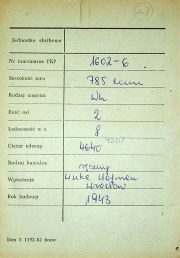 Jednostka służbowa
Nr inwentarza PKP 1602-6
Szerokość toru 785 mm
Rodzaj wagonu Wh
Ilość osi 2
Ładowność w t. 8
Ciężar własny 4640
Rodzaj hamulca
Wytwórnia Linke Hofman
Wrocław
Rok budowy 1943